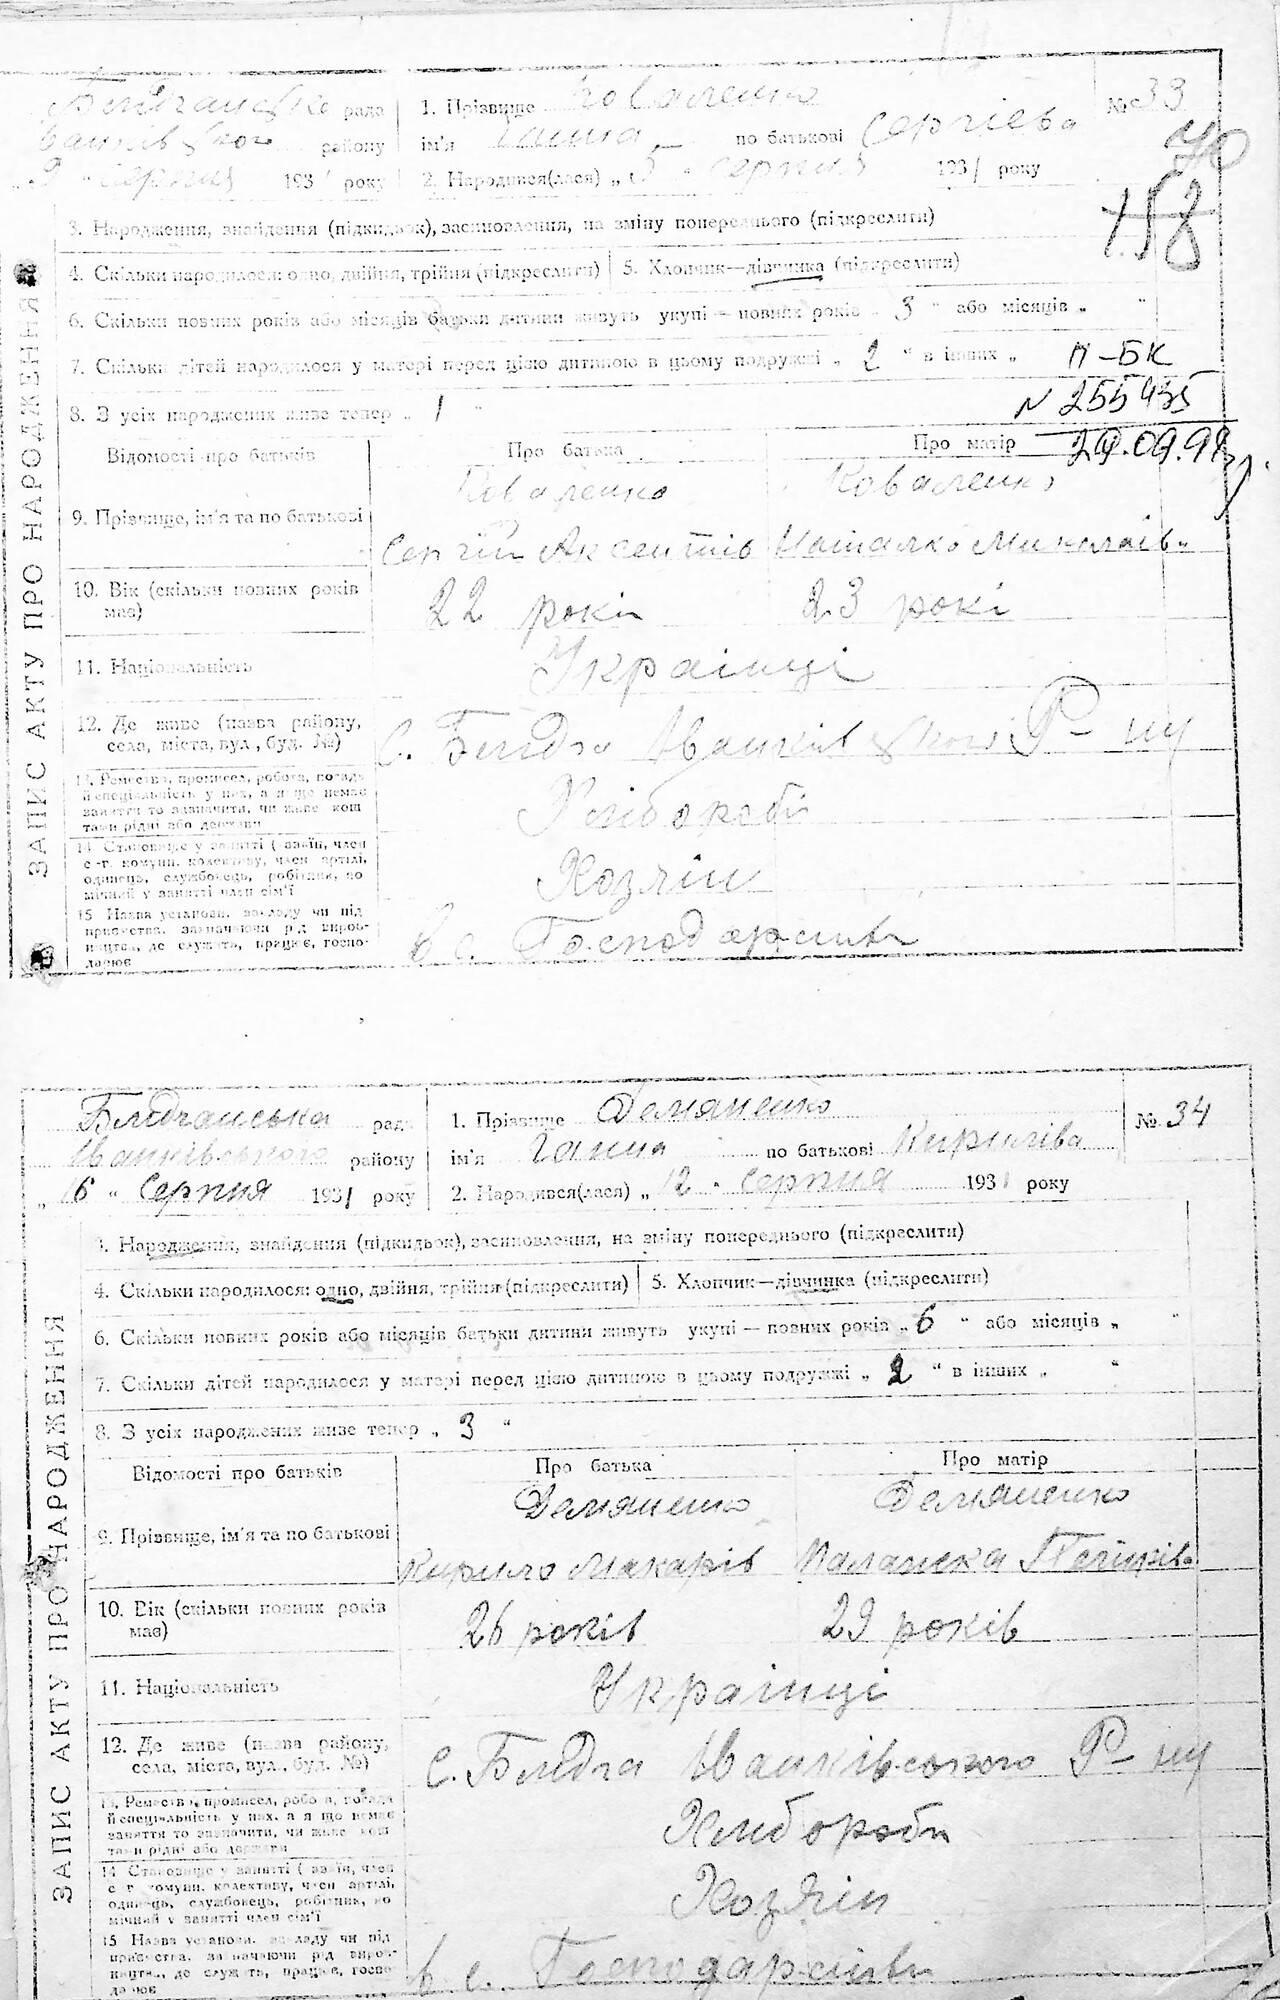 рада
району
„9“ серпня 1931 року
1. Прізвище Коваленко
ім'я Ганна по батькові Сергієва
2. Народився(лася) „5“ серпня 1931 року
№ 33
70
158
3. Народження, знайдення (підкидьок), засиновлення, на зміну попереднього (підкреслити)
4. Скільки народилося: одно, двійня, трійня (підкреслити)
5. Хлопчик—дівчинка (підкреслити)
6. Скільки повних років або місяців батьки дитини живуть укупі – повних років „3“ або місяців „ “
7. Скільки дітей народилося у матері перед цією дитиною в цьому подружжі „2“ в інших „
8. З усіх народжених живе тепер „1“
II-БК
N 255435
Відомості про батьків
Про батька
Про матір
9. Прізвище, ім'я та по батькові
Коваленко
Коваленко
Сергій Аксентів
Наталка Миколаїв.
10. Вік (скільки повних років має)
22 рокі
23 рокі
11. Національність
Українці
12. Де живе (назва району, села, міста, вул., буд. №)
с. Р-ну
13. Ремество, промисел, робота, посада
й спеціяльність у них, а якщо немає
заняття то зазначити, чи живе кош
тами рідні або держави
Хлібороби
14 Становище у занятті ( азяїн, член
с.-г. комуни, колективу, член артілі,
одинець, службовець, робітник, по
мічний у занятті член сім'ї
Хозяїн
15 Назва установи, закладу чи під
приємства, зазначаючи рід вироб-
ництва, де служить, працює, госпо-
дарює
в с. Господарстві
ЗАПИС АКТУ ПРО НАРОДЖЕННЯ
рада
Іванківського району
„16“ Серпня 1931 року
1. Прізвище Демяненко
ім'я Ганна по батькові Кирилівa
2. Народився(лася) „12“ серпня 1931 року
№ 34
3. Народження, знайдення (підкидьок), засиновлення, на зміну попереднього (підкреслити)
4. Скільки народилося: одно, двійня, трійня (підкреслити)
5. Хлопчик—дівчинка (підкреслити)
6. Скільки повних років або місяців батьки дитини живуть укупі — повних років „6“ або місяців „ “
7. Скільки дітей народилося у матері перед цією дитиною в цьому подружжі „2“ в інших „ “
8. З усіх народжених живе тепер „3“
Відомості про батьків
Про батька
Про матір
9. Прізвище, ім'я та по батькові
Демяненко
Демяненко
Кирило Макарів
Палажка
10. Вік (скільки повних років має)
26 років
29 років
11. Національність
Українці
12. Де живе (назва району, села, міста, вул., буд. №)
с. Іванківського Р-ну
13. Ремество, промисел, робота, посада
й спеціяльність у них, а якщо немає
заняття то зазначити, чи живе кош
тами рідні або держави
Хлібороби
14 Становище у занятті ( азяїн, член
с г. комуни, колективу, член артілі,
одинець, службовець, робітник, по
мічний у занятті член сім'ї
Хозяїн
15 Назва установи, закладу чи під
приємства, зазначаючи рід вироб-
ництва, де служить, працює, госпо-
дарює
в с. Господарстві
ЗАПИС АКТУ ПРО НАРОДЖЕННЯ